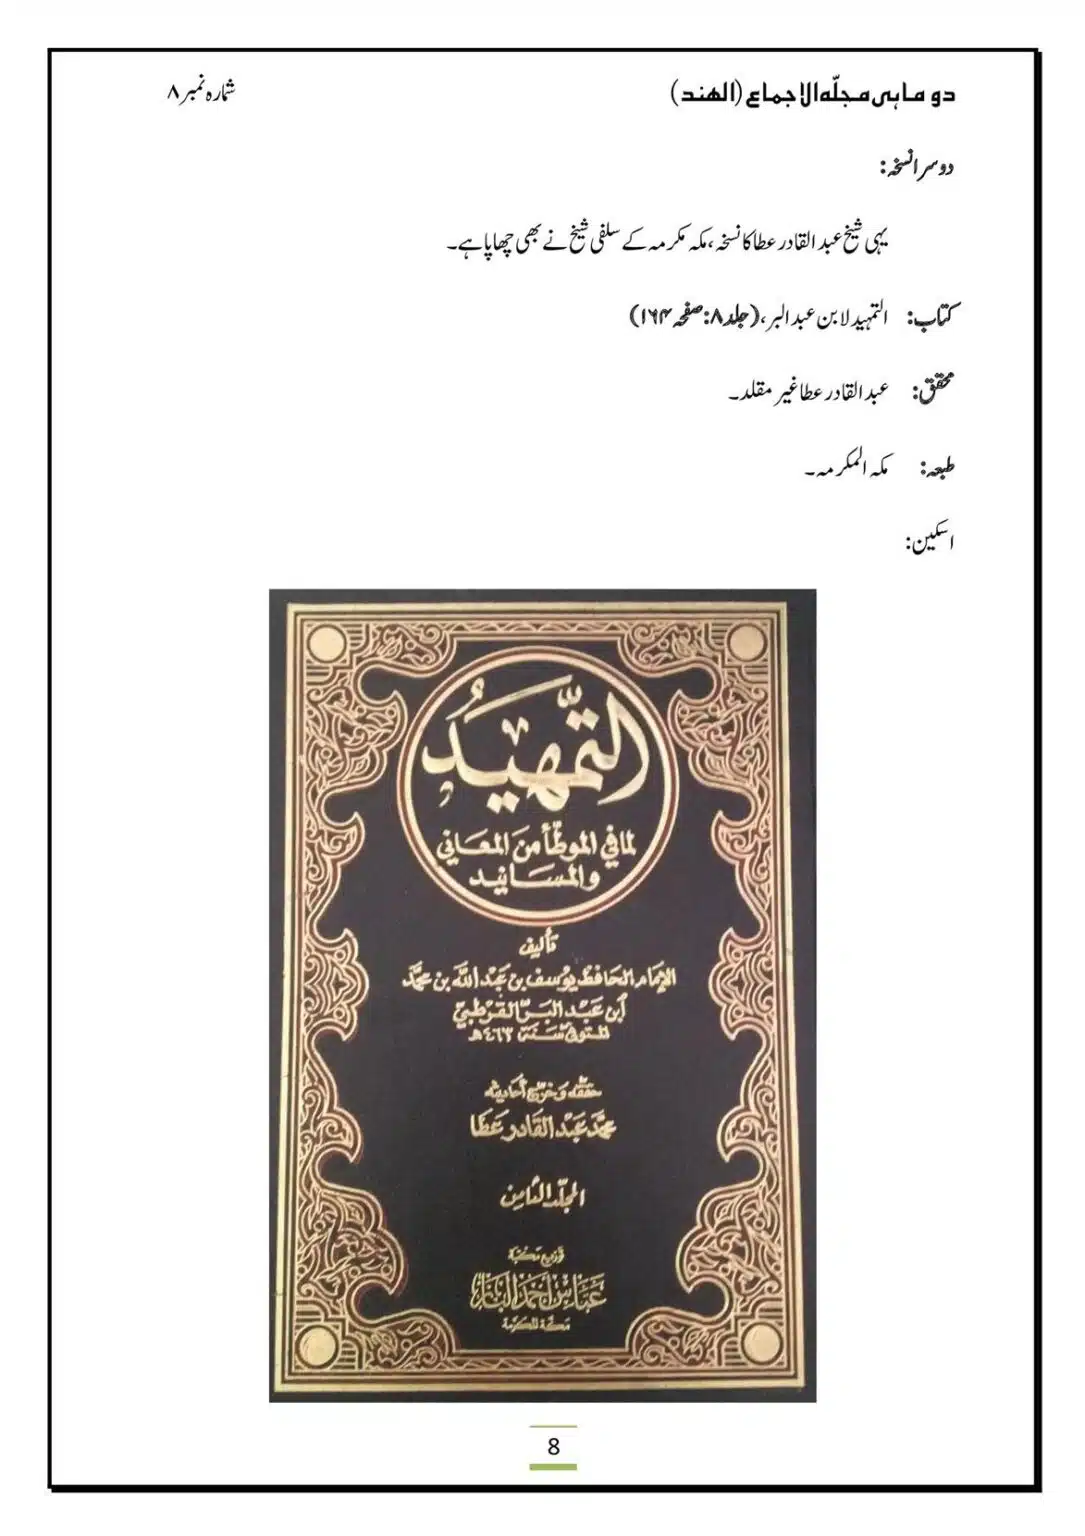 دو ماہی مجلّہ الاجماع (الھند)
شمارہ نمبر ۸
دوسرا نسخہ:
یہی شیخ عبد القادر عطا کا نسخہ، مکہ مکرمہ کے سلفی شیخ نے بھی چھاپا ہے۔
کتاب: التمہید لابن عبد البر، (جلد ۸: صفحہ ۱۶۴)
محقق: عبد القادر عطا غیر مقلد۔
طبعہ: مکہ المکرمہ۔
اسکین:
التمهيد
لما في الموطأ من المعاني
والمسانيد
تأليف
الإمام الحافظ يوسف بن عبد الله بن محمد
ابن عبد البر القرطبي
المتوفى سنة ٤٦٣ هـ
حققه وخرج أحاديثه
محمد عبد القادر عطا
المجلد الثامن
توزيع مكتبة
عباس أحمد الباز
مكة المكرمة
8